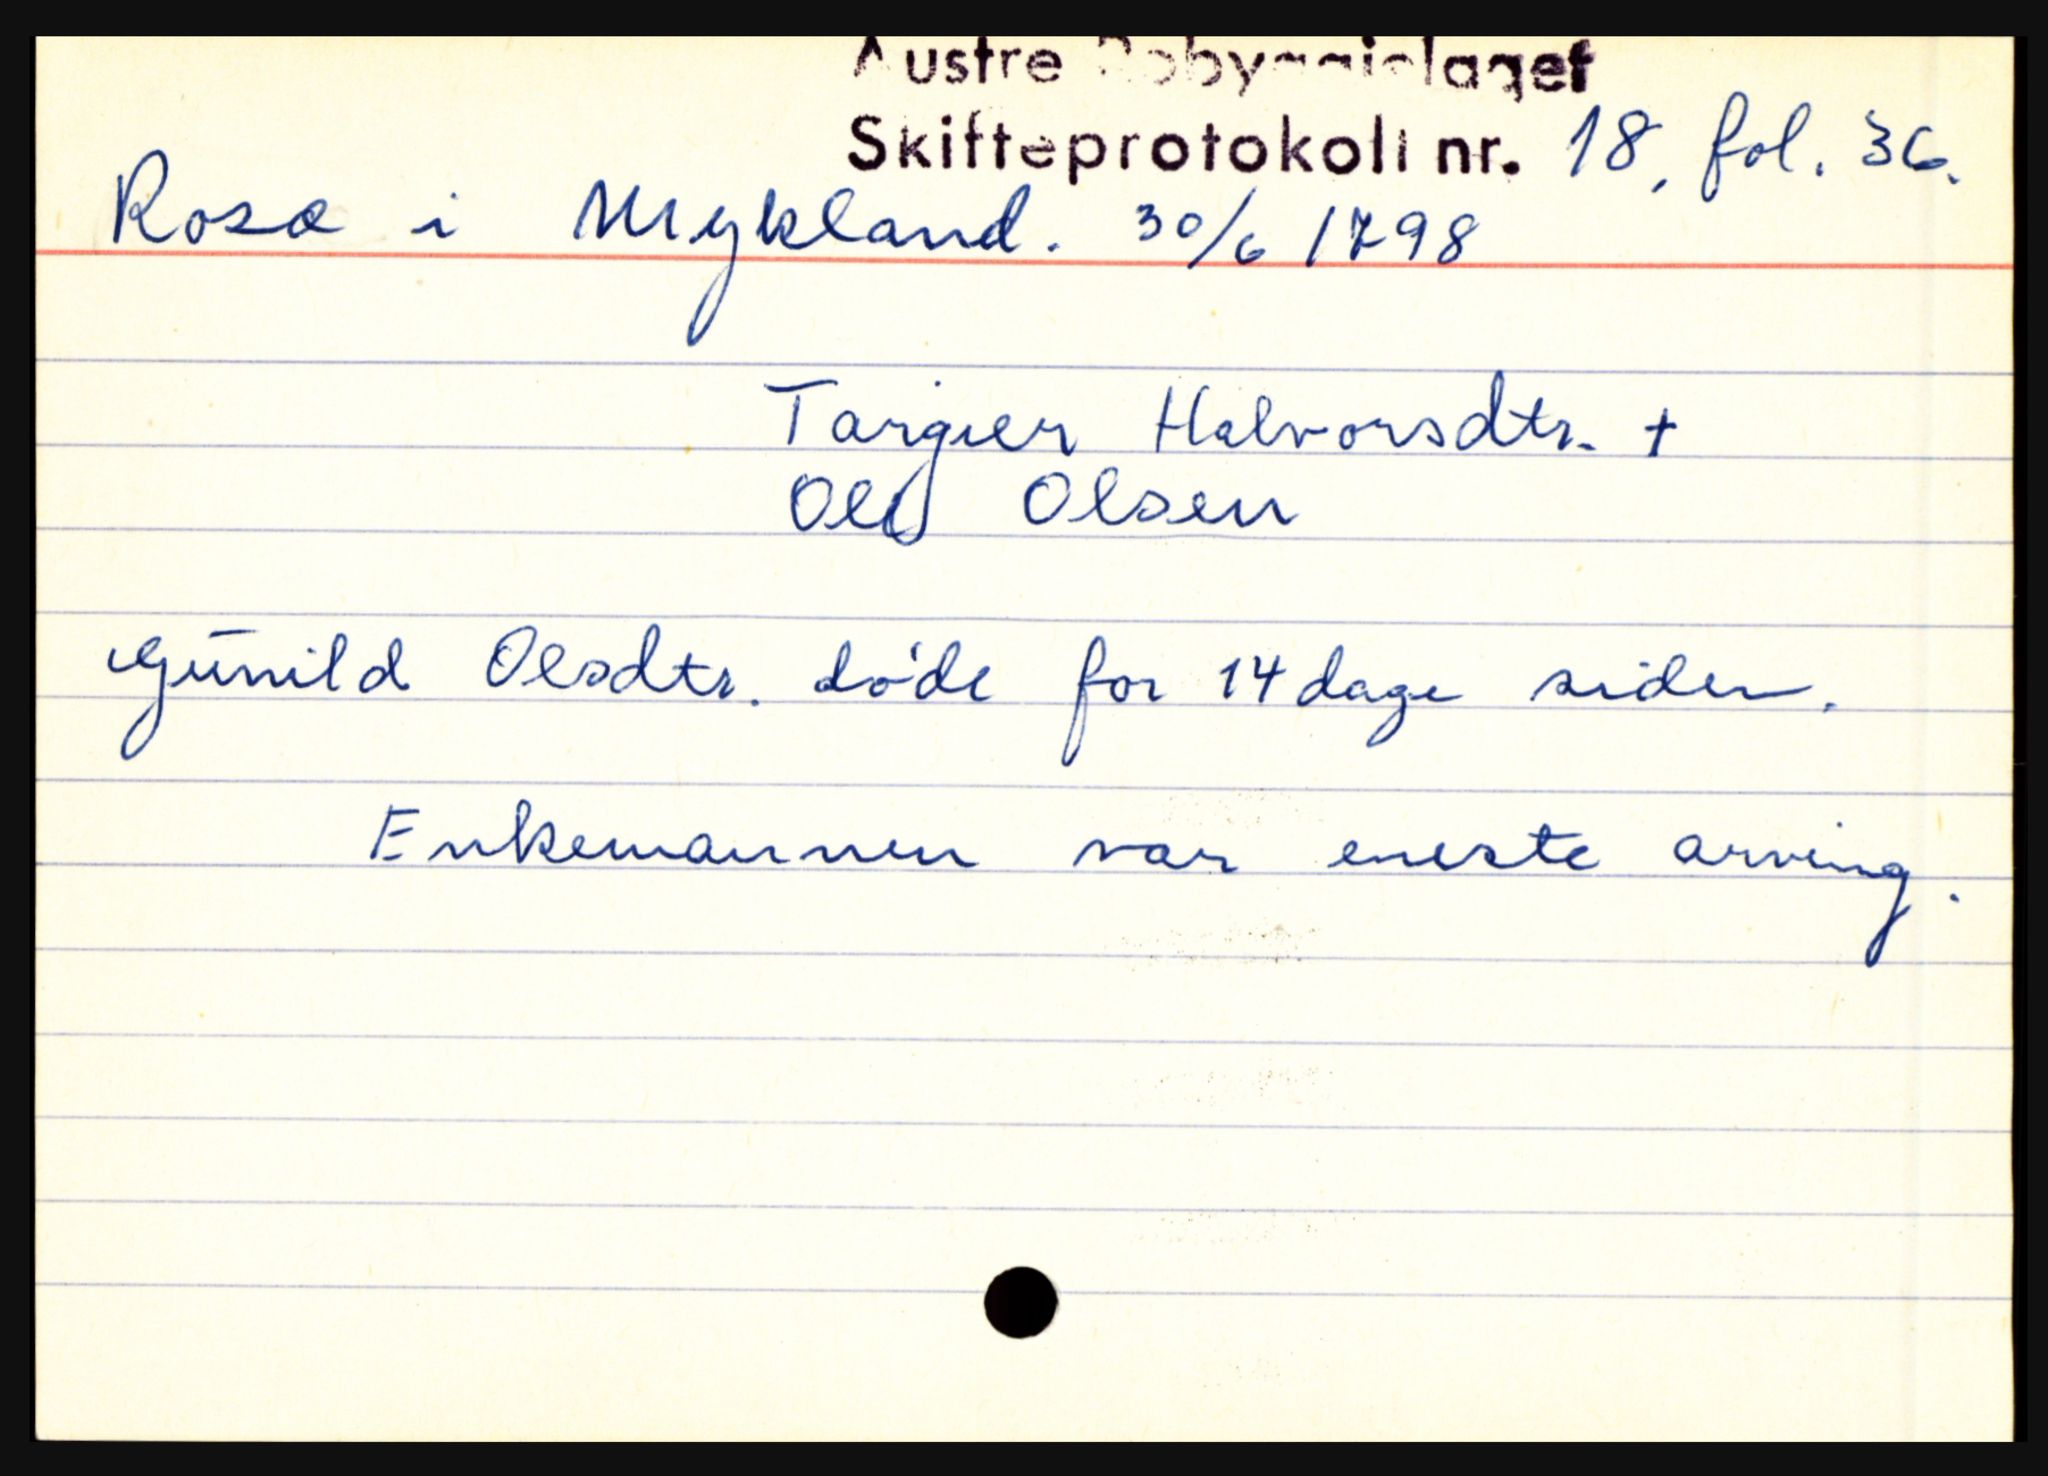 Austre Robyggjelaget
Skifteprotokoll nr. 18, fol. 36.
Rosæ i Mykland. 30/6 1798
Targier Halvorsdtr. +
Ole Olsen
Gunild Olsdtr. døde for 14 dage siden.
Enkemannen var eneste arving.